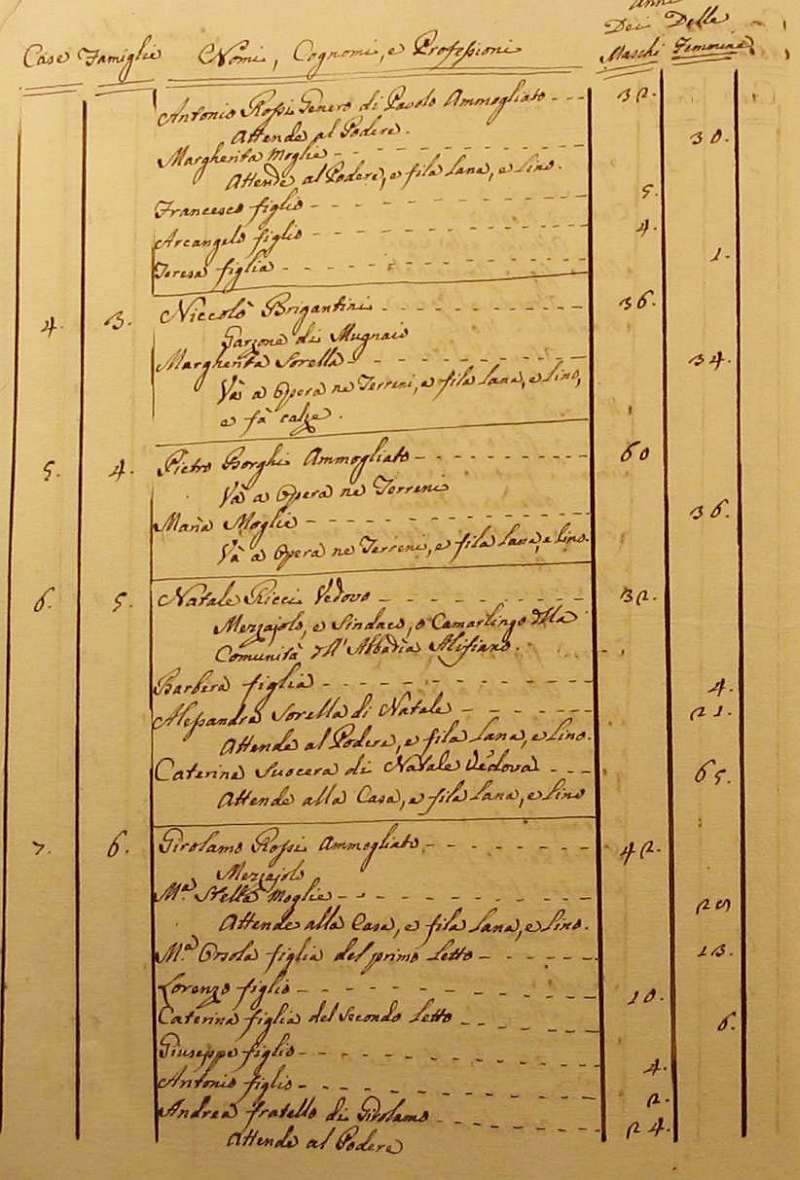 Anni
Dei Delle
Case Famiglie Nomi, Cognomi, e Professioni Maschi Femmine
Antonio Rossi Genero di Paolo Ammogliato 32.
Attende al Podere.
Margherita Moglie 30.
Attende al Podere, e fila Lana, e Lino.
Francesco figlio 5.
Arcangelo figlio 4.
Teresa figlia 1.
4. 3. Niccolò Brigantini 36.
Garzone di Mugnaio
Margherita Sorella 34.
Và a Opera ne Terreni, e fila Lana, e Lino,
e fà calze.
5. 4. Pietro Borghi Ammogliato 60
Và a Opera ne Terreni
Maria Moglie 36.
Và a Opera ne Terreni, e fila Lana, e Lino.
6. 5. Natale Ricci Vedovo 32.
Mezzajolo, e Sindaco, o Camarlingo della
Comunità dell'Abbadia
Barbera figlia 4.
Alessandra Sorella di Natale 21.
Attende al Podere, e fila Lana, e Lino.
Caterina Suocera di Natale Vedova 65.
Attende alla Casa, e fila Lana, e Lino
7. 6. Girolamo Rossi Ammogliato 42.
Mezzajolo
M.a Stella Moglie
Attende alla Casa, e fila Lana, e Lino.
M.a Orsola figlia del primo Letto 13.
Lorenzo figlio 10.
Caterina figlia del Secondo Letto 6.
Giuseppe figlio 4.
Antonio figlio 2.
Andrea fratello di Girolamo 24.
Attende al Podere